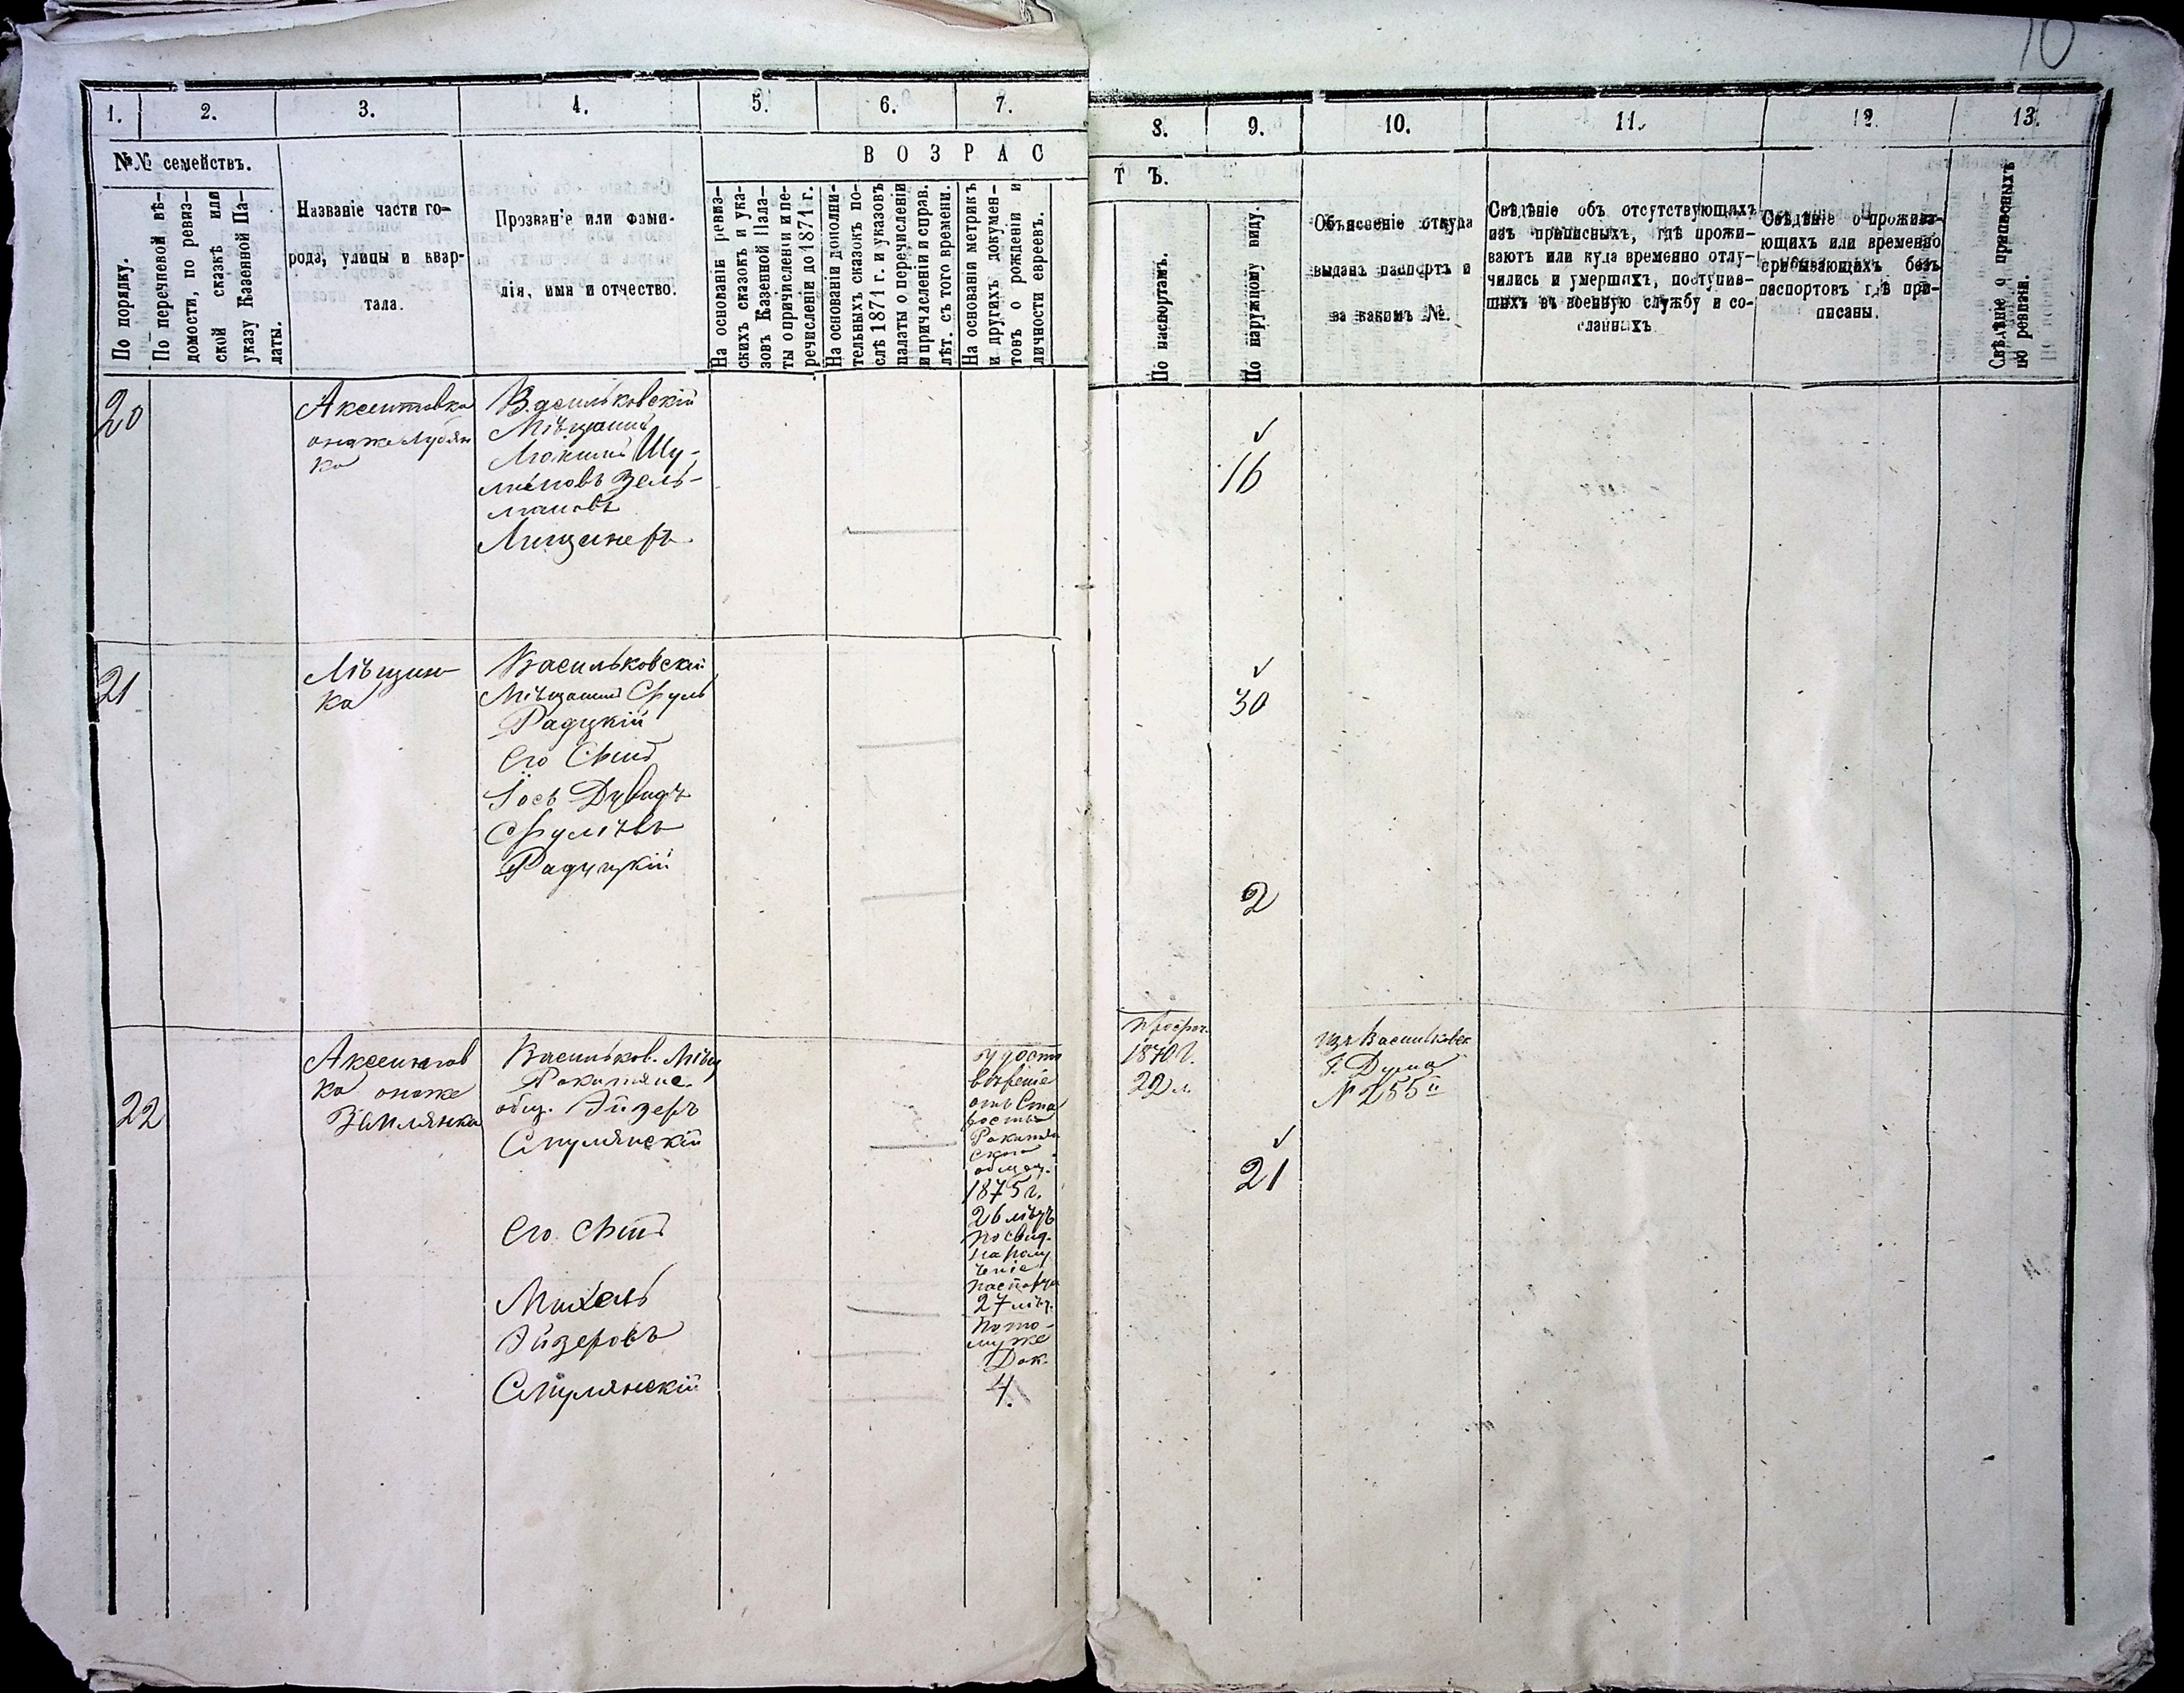 10
1.
2.
3.
4.
5.
6.
7.
8.
9.
10.
11.
12.
13.
№№ семействъ.
По порядку.
По перечневой вѣ-
домости, по ревиз-
ской сказкѣ или
указу Казенной Па-
латы.
Названіе части го-
рода, улицы и квар-
тала.
Прозваніе или фами-
лія, имя и отчество.
ВОЗРАС
ТЪ.
На основаніи ревиз-
скихъ сказокъ и ука-
зовъ Казенной Пала-
ты о причисленіи и пе-
речисленіи до 1871 г.
На основаніи дополни-
тельныхъ сказокъ по-
слѣ 1871 г. и указовъ
палаты о перечисленіи
и причисленіи и справ.
лѣт. съ того времени.
На основаніи метрикъ
и другихъ докумен-
товъ о рожденіи и
личности евреевъ.
По паспортамъ.
По наружному виду.
Объясненіе откуда
выданъ паспортъ и
за какимъ №.
Свѣдѣніе объ отсутствующихъ
изъ приписныхъ, гдѣ прожи-
ваютъ или куда временно отлу-
чились и умершихъ, поступив-
шихъ въ военную службу и со-
сланныхъ
Свѣдѣніе о прожива-
ющихъ или временно
пребывающихъ безъ
паспортовъ гдѣ при-
писаны.
Свѣдѣніе о приписныхъ
по ревизіи.
20
онаже
ка
Васильковскій
Мѣщанинъ
Шу-
Зель-
мановъ
Лищинеръ
16
21
ка
Васильковскій
Мѣщанинъ Сруль
Радуцкій
Его Сынъ
Іось Дувидъ
Срулевъ
Радуцкій
30
2
22
ка онаже
Васильков. Мѣщ
Ракитянс.
общ. Эйзеръ
Смулянскій
Его Сынъ
Михель
Эйзеровъ
Смулянскій
удосто
вѣреніе
отъ Ста
росты
Ракитян
скаго
общест.
1875 г.
26 лѣтъ
по свид.
на полу
ченіе
паспорта
27 лѣт.
по то-
муже
Док.
4.
Просроч.
1870 г.
22 л.
21
Изъ Васильковск
Г. Думы
№ 255